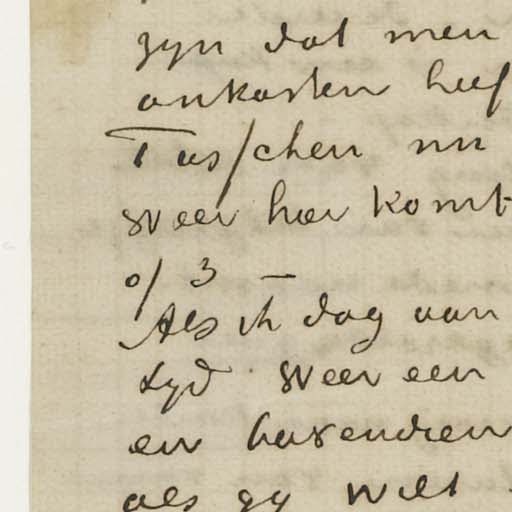 zyn dat men
onkosten heef
Tusschen nu
weer hoe komt
of 3 –
Als ik dag aan
tyd weer een
en bovendien
als gy wilt